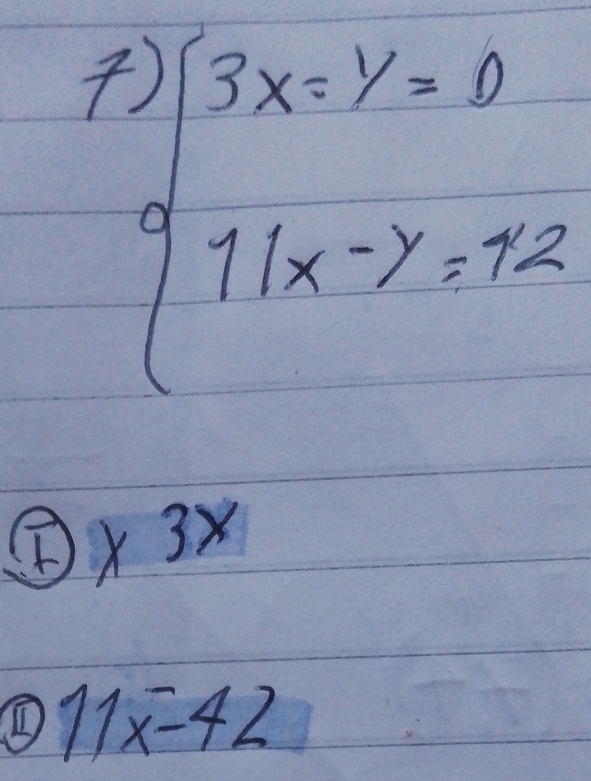 7) 3x = y = 0
11x - y = 42
I x 3x
II 11x - 42